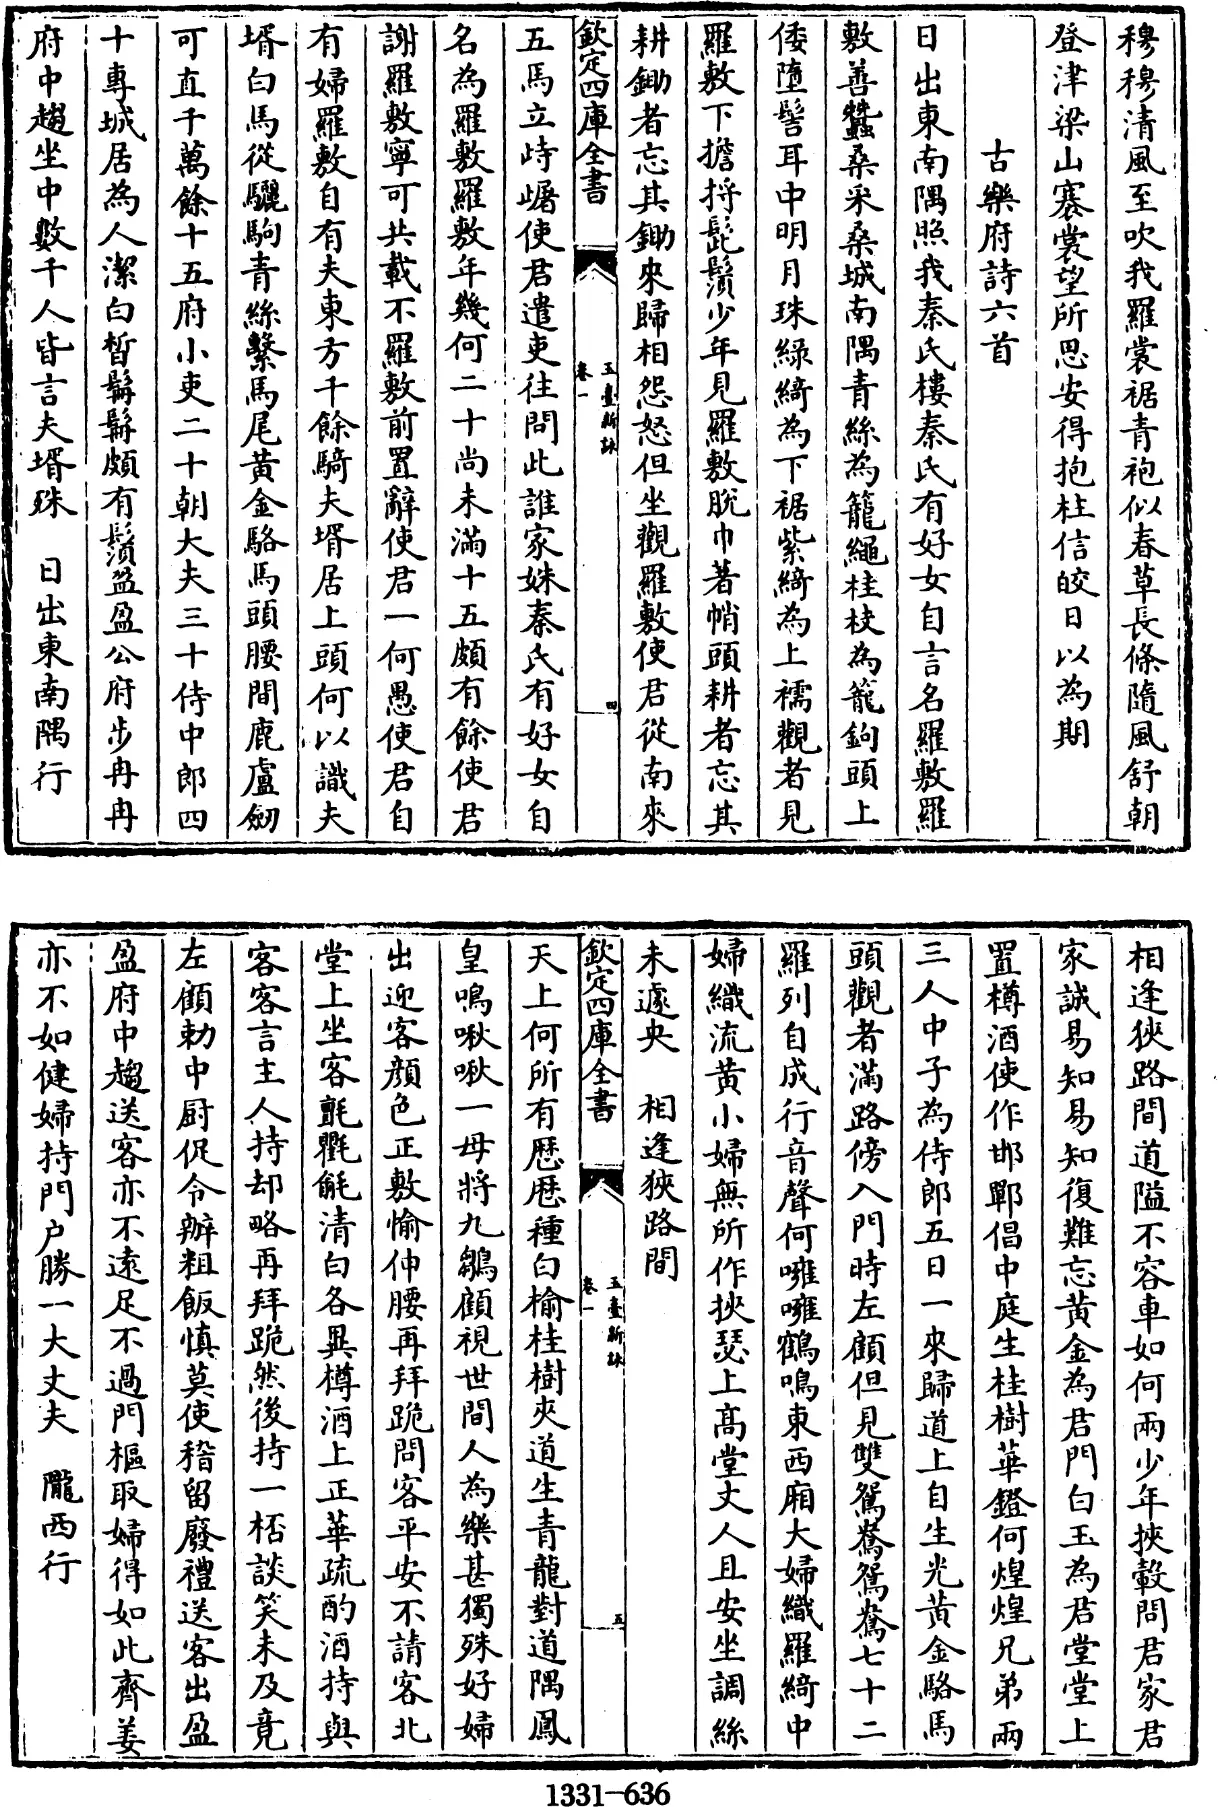 穆穆清風至吹我羅裳裾青袍似春草長條隨風舒朝
登津梁山褰裳望所思安得抱柱信皎日以為期
古樂府詩六首
日出東南隅照我秦氏樓秦氏有好女自言名羅敷羅
敷善蠶桑采桑城南隅青絲為籠繩桂枝為籠鉤頭上
倭墮髻耳中明月珠綠綺為下裾紫綺為上襦觀者見
羅敷下擔捋髭鬚少年見羅敷脫巾著帩頭耕者忘其
耕鋤者忘其鋤來歸相怨怒但坐觀羅敷使君從南來
欽定四庫全書
玉臺新詠
卷一
四
五馬立峙𡺾使君遣吏往問此誰家姝秦氏有好女自
名為羅敷羅敷年幾何二十尚未滿十五頗有餘使君
謝羅敷寧可共載不羅敷前置辭使君一何愚使君自
有婦羅敷自有夫東方千餘騎夫壻居上頭何以識夫
壻白馬從驪駒青絲繫馬尾黃金駱馬頭腰間鹿盧劒
可直千萬餘十五府小吏二十朝大夫三十侍中郎四
十專城居為人潔白皙鬑鬑頗有鬚盈盈公府步冉冉
府中趨坐中數千人皆言夫壻殊 日出東南隅行
相逢狹路間道隘不容車如何兩少年挾轂問君家君
家誠易知易知復難忘黃金為君門白玉為君堂堂上
置樽酒使作邯鄲倡中庭生桂樹華鐙何煌煌兄弟兩
三人中子為侍郎五日一來歸道上自生光黃金駱馬
頭觀者滿路傍入門時左顧但見雙鴛鴦鴛鴦七十二
羅列自成行音聲何噰噰鶴鳴東西廂大婦織羅綺中
婦織流黃小婦無所作挾瑟上高堂丈人且安坐調絲
未遽央 相逢狹路間
欽定四庫全書
玉臺新詠
卷一
五
天上何所有歴歴種白榆桂樹夾道生青龍對道隅鳳
皇鳴啾啾一母將九鶵顧視世間人為樂甚獨殊好婦
出迎客顔色正敷愉伸腰再拜跪問客平安不請客北
堂上坐客氈氍毹清白各異樽酒上正華疏酌酒持與
客客言主人持却略再拜跪然後持一桮談笑未及竟
左顧勅中厨促令辦粗飯慎莫使稽留廢禮送客出盈
盈府中趨送客亦不遠足不過門樞取婦得如此齊姜
亦不如健婦持門户勝一大丈夫 隴西行
1331-636